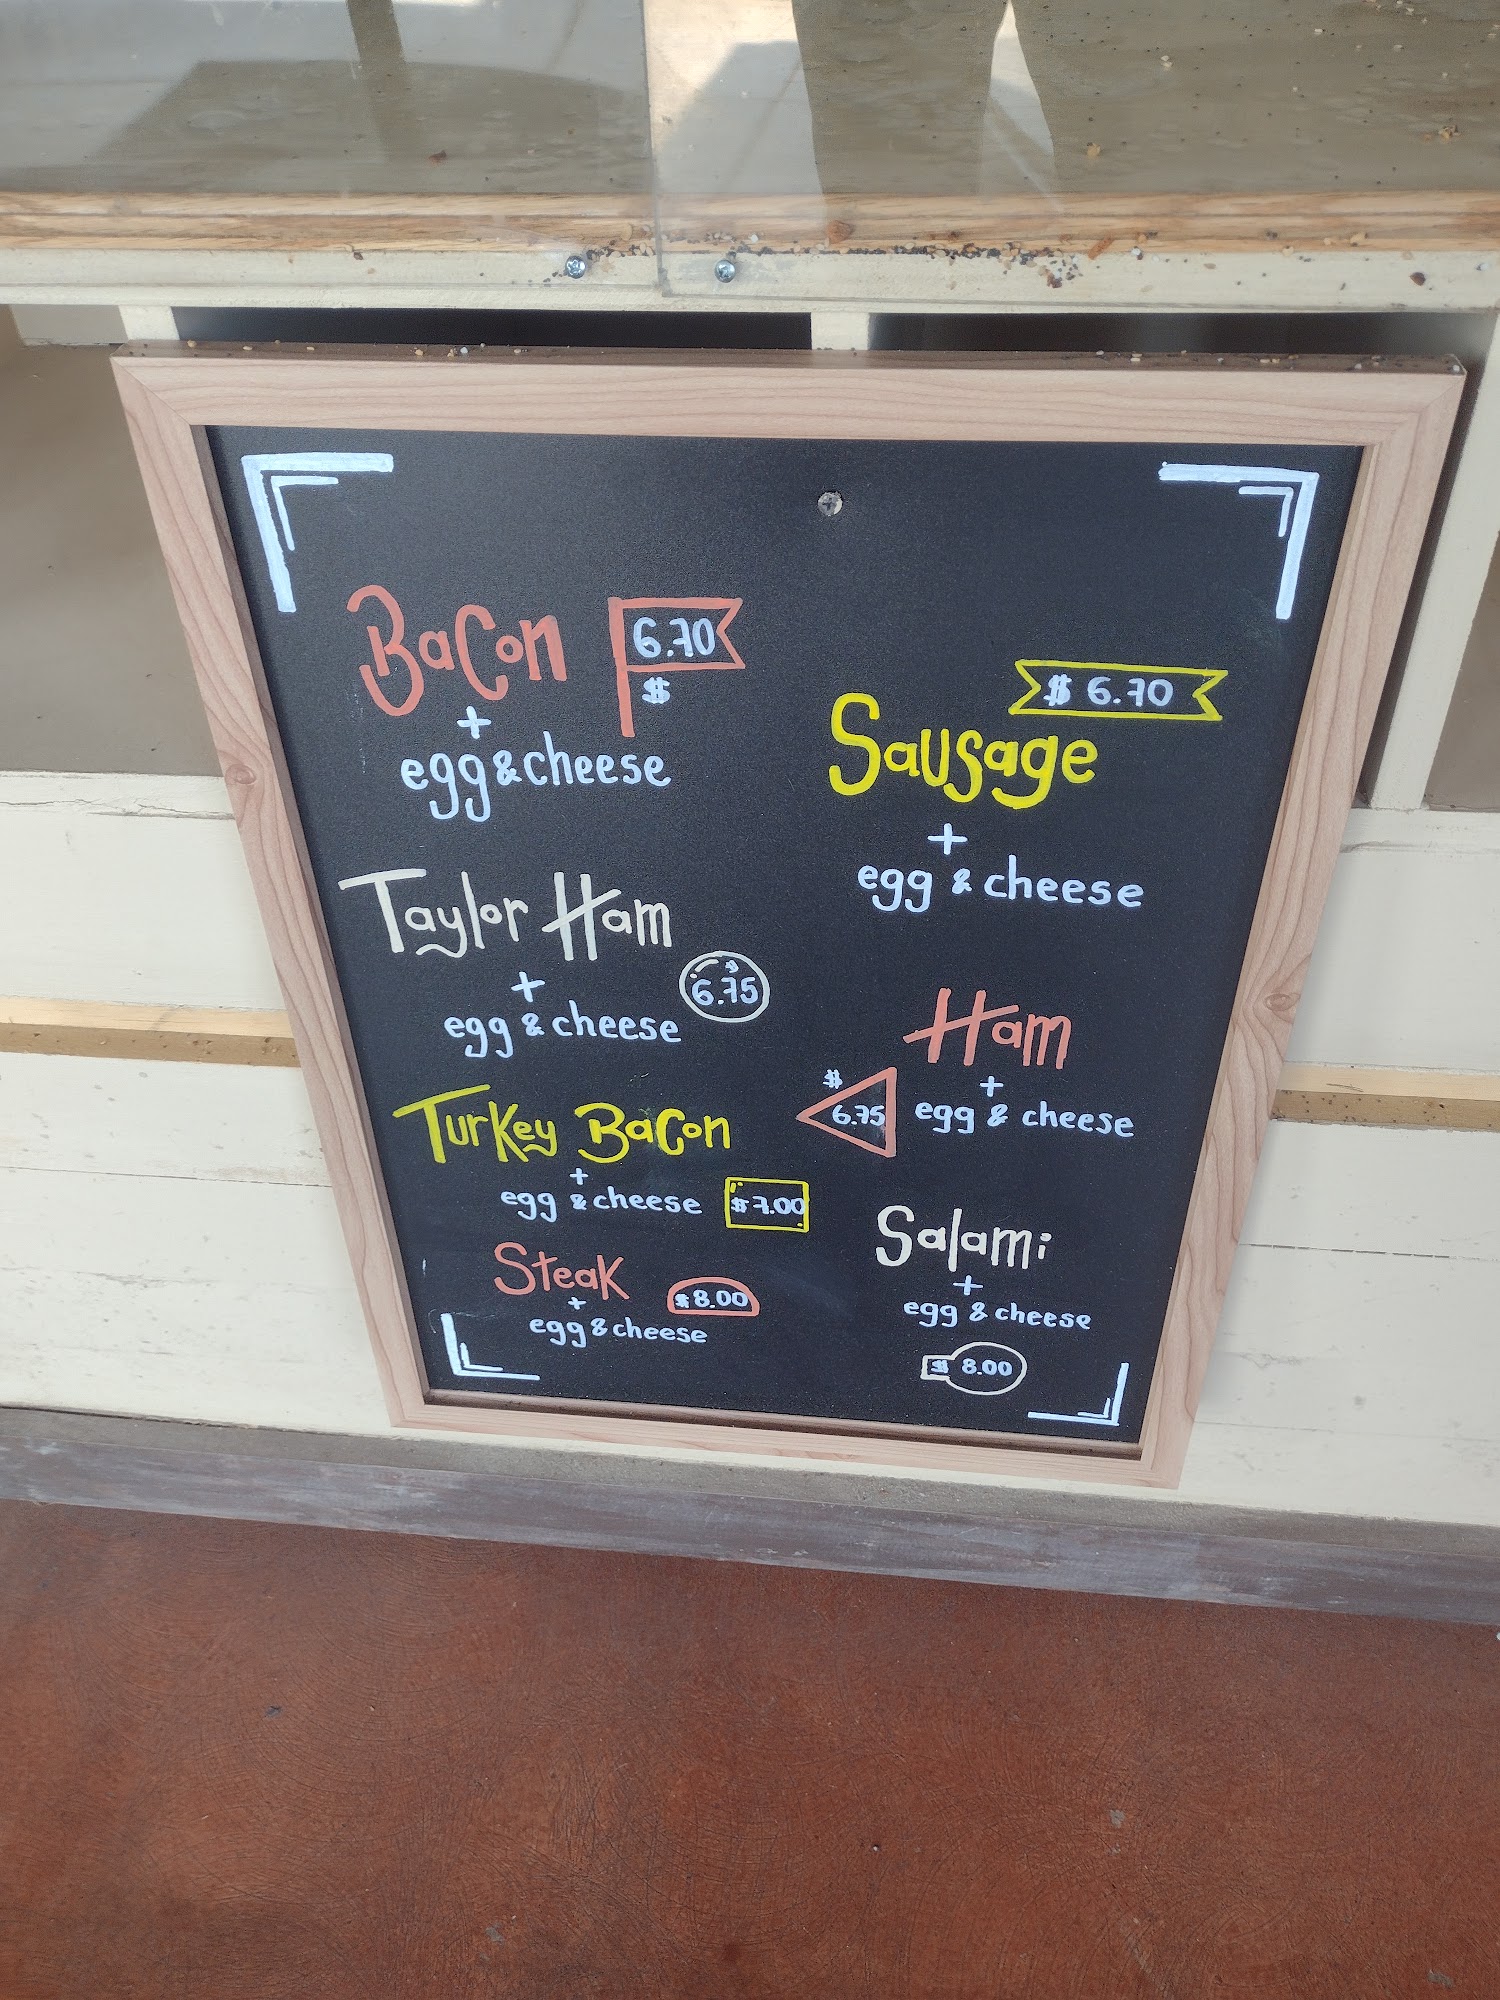 Bacon
6.70
$
+
egg & cheese
$ 6.70
Sausage
+
egg & cheese
Taylor Ham
+
egg & cheese
$
6.75
Ham
+
egg & cheese
$
6.75
Turkey Bacon
+
egg & cheese
$ 7.00
Salami
+
egg & cheese
$ 8.00
Steak
+
egg & cheese
$ 8.00